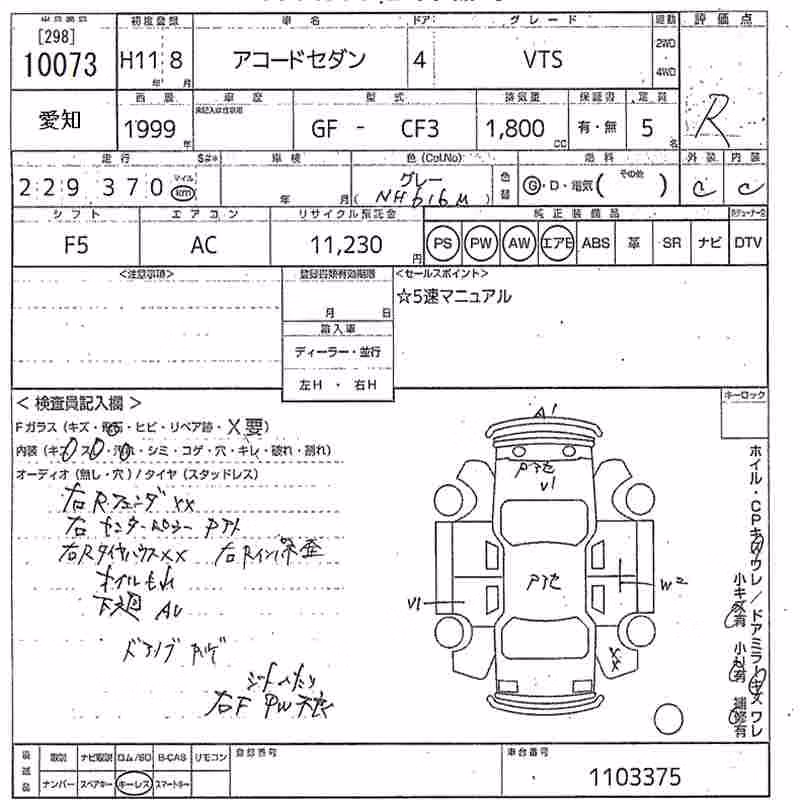 [298]
10073
初度登録
H11 8
年 月
車名
アコードセダン
ドア
4
グレード
VTS
2WD
4WD
評価点
R
愛知
西暦
1999
年
車歴
型式
GF - CF3
排気量
1,800
cc
保証書
有・無
定員
5
名
走行
229370
マイル
km
$#*
車検
年 月
色(Col.No)
グレー
(NH616M)
色替
燃料
G・D・電気( その他 )
外装
C
内装
C
シフト
F5
エアコン
AC
リサイクル預託金
11,230
円
純正装備品
PS PW AW エアB ABS 革 SR ナビ DTV
<注意事項>
登録書類有効期限
月 日
輸入車
ディーラー・並行
左H ・ 右H
<セールスポイント>
☆5速マニュアル
<検査員記入欄>
Fガラス(キズ・飛石・ヒビ・リペア跡・X要)
内装(キズ・スレ・汚れ・シミ・コゲ・穴・キレ・破れ・割れ)
オーディオ(無し・穴)/タイヤ(スタッドレス)
右Rフェンダ XX
右 センターピラー
右RタイヤハウスXX 右Rインパネ
オイルもれ
下廻
シートへたり
右F PW不良
キーロック
A1
V1
V1
W2
XX
ホイル・CPキズワレ/ドアミラーキズワレ
小キズ有 小凹有 補修有
後送品
取説 ナビ取説 ロム/SD B-CAS リモコン
ナンバー スペアキー キーレス スマートキー
登録番号
車台番号
1103375